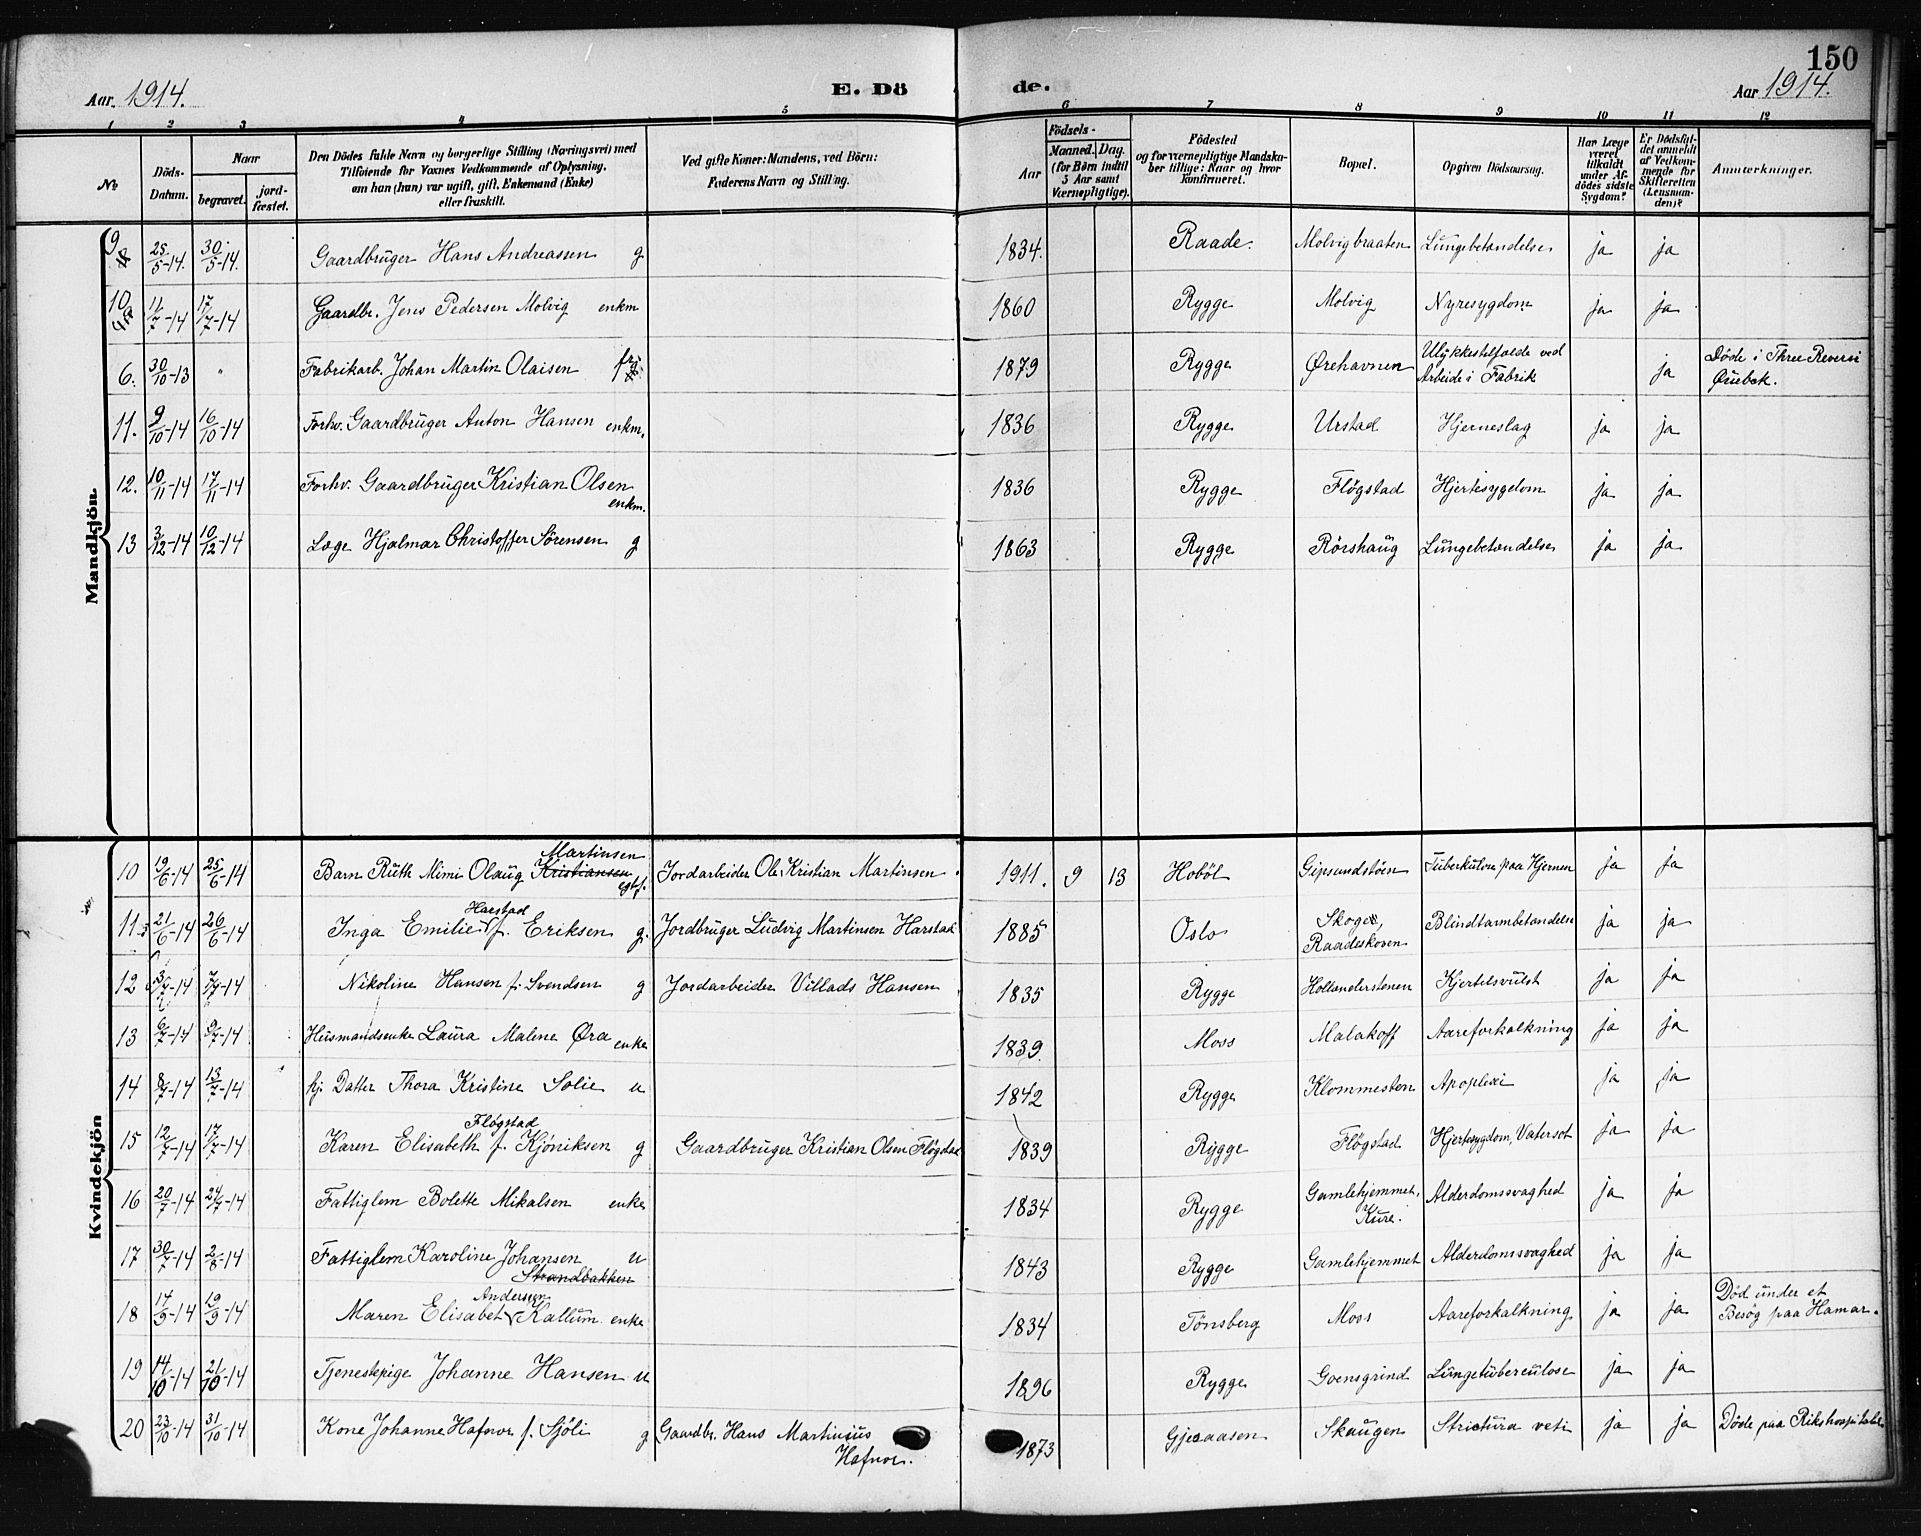 150
Aar. 1914. E. Dö de. Aar 1914.
1 2 3 4 5 6 7 8 9 10 11 12
No
Döds-Datum.
Naar begravet. jord-fæstet.
Den Dödes fulde Navn og borgerlige Stilling (Næringsvei) med
Tilföiende for Voxnes Vedkommende af Oplysning,
om han (hun) var ugift, gift, Enkemand (Enke)
eller fraskilt.
Ved gifte Koner: Mandens, ved Börn:
Faderens Navn og Stilling.
Födsels-
Aar Maaned. Dag.
(for Börn indtil
5 Aar samt
Værnepligtige).
Födested
og for værnepligtige Mandska-
ber tillige: Naar og hvor
konfirmeret.
Bopæl.
Opgiven Dödsaarsag.
Har Læge
været
tilkaldt
under Af-
dödes sidste
Sygdom?
Er Dödsfal-
det anmeldt
af Vedkom-
mende for
Skifteretten
(Lensman-
den)?
Anmærkninger.
Mandkjön.
9 25/5-14. 30/5-14. Gaardbruger Hans Andreassen g. 1834. Raade. Molvigbraaten Lungebetændelse ja ja
10 11/7-14 17/7-14 Gaardbr. Jens Pedersen Molvig enkm 1860 Rygge Molvig Nyresygdom ja ja
6. 30/10-13 " Fabrikarb. Johan Martin Olaisen 1879 Rygge Ørehavnen Ulykkestilfælde ved Arbeide i Fabrik ja Døde i Three Rever i Quebek.
11. 9/10-14 16/10-14 Forhv. Gaardbruger Anton Hansen enkm. 1836 Rygge Urstad Hjerneslag ja ja
12. 10/11-14 17/11-14 Forhv. Gaardbruger Kristian Olsen enkm. 1836 Rygge Fløgstad Hjertesygdom ja ja
13 3/12-14 10/12-14 Læge Hjalmar Christoffer Sørensen g 1863 Rygge Rörshaug Lungebetændelse ja ja
Kvindekjön
10 19/6-14 25/6-14 Barn Ruth Mimi Olaug Kristiansen Martinsen egtf. Jordarbeider Ole Kristian Martinsen 1911. 9 13 Hoböl Gipsundstöen Tuberkulose paa Hjernen ja ja
11 21/6-14 26/6-14 Inga Emilie Harstad f. Eriksen g. Jordbruger Ludvig Martinsen Harstad 1885 Oslo Skoge, Raadeskoven Blindtarmbetændelse ja ja
12 3/7-14 7/7-14 Nikoline Hansen f. Svendsen g Jordarbeider Villads Hansen 1835 Rygge Hollenderstenen Kjertelsvulst ja ja
13 6/7-14 9/7-14 Husmandsenke Laura Malene Øra enke 1839. Moss Malakoff Aareforkalkning ja ja
14 8/7-14 13/7-14 hj. Datter Thora Kristine Solie u 1842 Rygge Klommesten Apoplexi ja ja
15 12/7-14 17/7-14 Karen Elisabeth Fløgstad f. Kjøniksen g Gaardbruger Kristian Olsen Fløgstad 1839 Rygge Fløgstad Hjertesygdom, Vatersot ja ja
16 20/7-14 24/7-14 Fattiglem Bolette Mikalsen enke 1834 Rygge Gamlehjemmet, Kure. Alderdomssvaghed ja ja
17 30/7-14 2/8-14 Fattiglem Karoline Johansen Strandbakken u 1843 Rygge Gamlehjemmet Alderdomssvaghed ja ja
18 14/9-14 19/9-14 Maren Elisabet Andersen Kallum enke 1834 Tönsberg Moss Aareforkalkning ja ja Död under et Besög paa Hamar.
19 14/10-14 21/10-14 Tjenestepige Johanne Hansen u 1896 Rygge Goensgrind Lungetuberculose ja ja
20 23/10-14 31/10-14 Kone Johanne Hafnor f. Sjöli g Gaardbr. Hans Martinius Hafnor. 1873 Gjesaasen Skaugen Strictura veti ja ja Döde paa Rikshospitalet